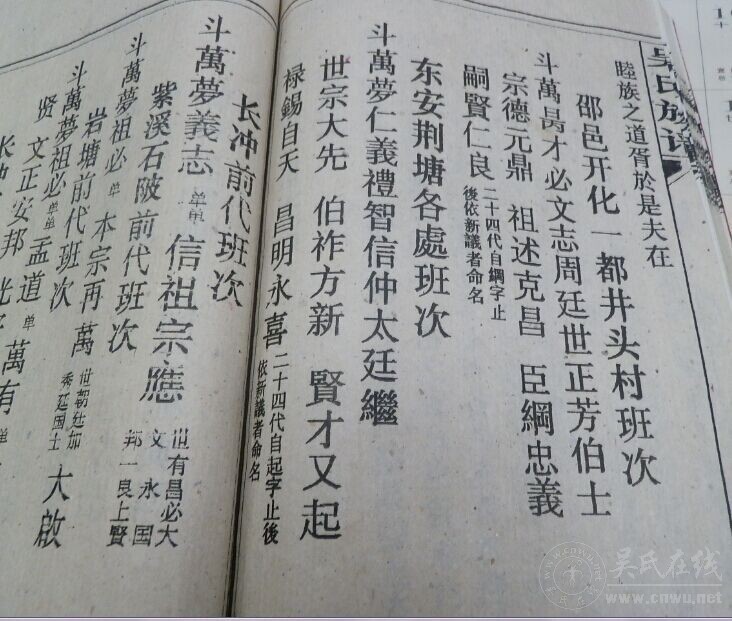 吴氏族谱
睦族之道胥於是夫在
邵邑开化一都井头村班次
斗萬昺才必文志周廷世正芳伯士
宗德元鼎 祖述克昌 臣綱忠義
嗣賢仁良 二十四代自綱字止後依新議者命名
东安荆塘各處班次
斗萬夢仁義禮智信仲太廷繼
世宗大先 伯祚方新 賢才又起
禄錫自天 昌明永喜 二十四代自起字止後依新議者命名
长冲前代班次
斗萬夢義志 单单 信祖宗應 世有昌必大文永国邦一良上賢
紫溪石陂前代班次
斗萬夢祖必 单 本宗再萬 世朝廷加秀廷国士 大啟
岩塘前代班次
斗萬夢祖必 单单 孟道 单 萬有 单
贤 文正安邦 光
长冲
吴氏在线
www.cnwu.net